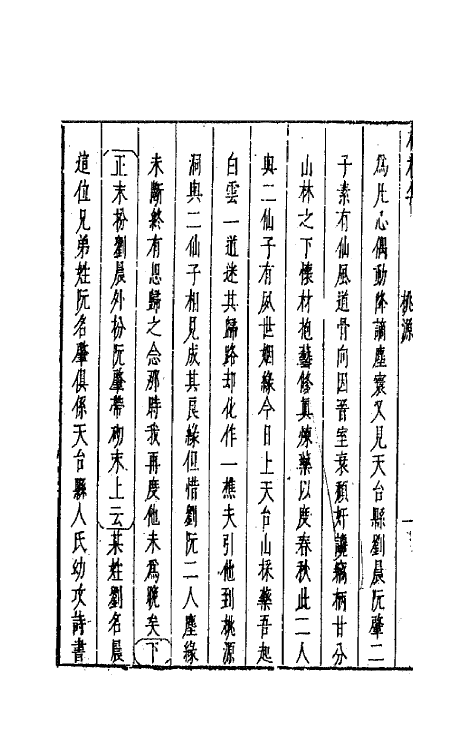 桃源
為凡心偶動降謫塵寰又見天台縣劉晨阮肇二
子素有仙風道骨向因晉室衰頹奸讒竊柄甘分
山林之下懷材抱藝修真煉藥以度春秋此二人
與二仙子有夙世姻緣今日上天台山採藥吾起
白雲一道迷其歸路却化作一樵夫引他到桃源
洞與二仙子相見成其良緣但惜劉阮二人塵緣
未斷終有思歸之念那時我再度他未為晚矣下
正末扮劉晨外扮阮肇帶砌末上云某姓劉名晨
這位兄弟姓阮名肇俱係天台縣人氏幼攻詩書